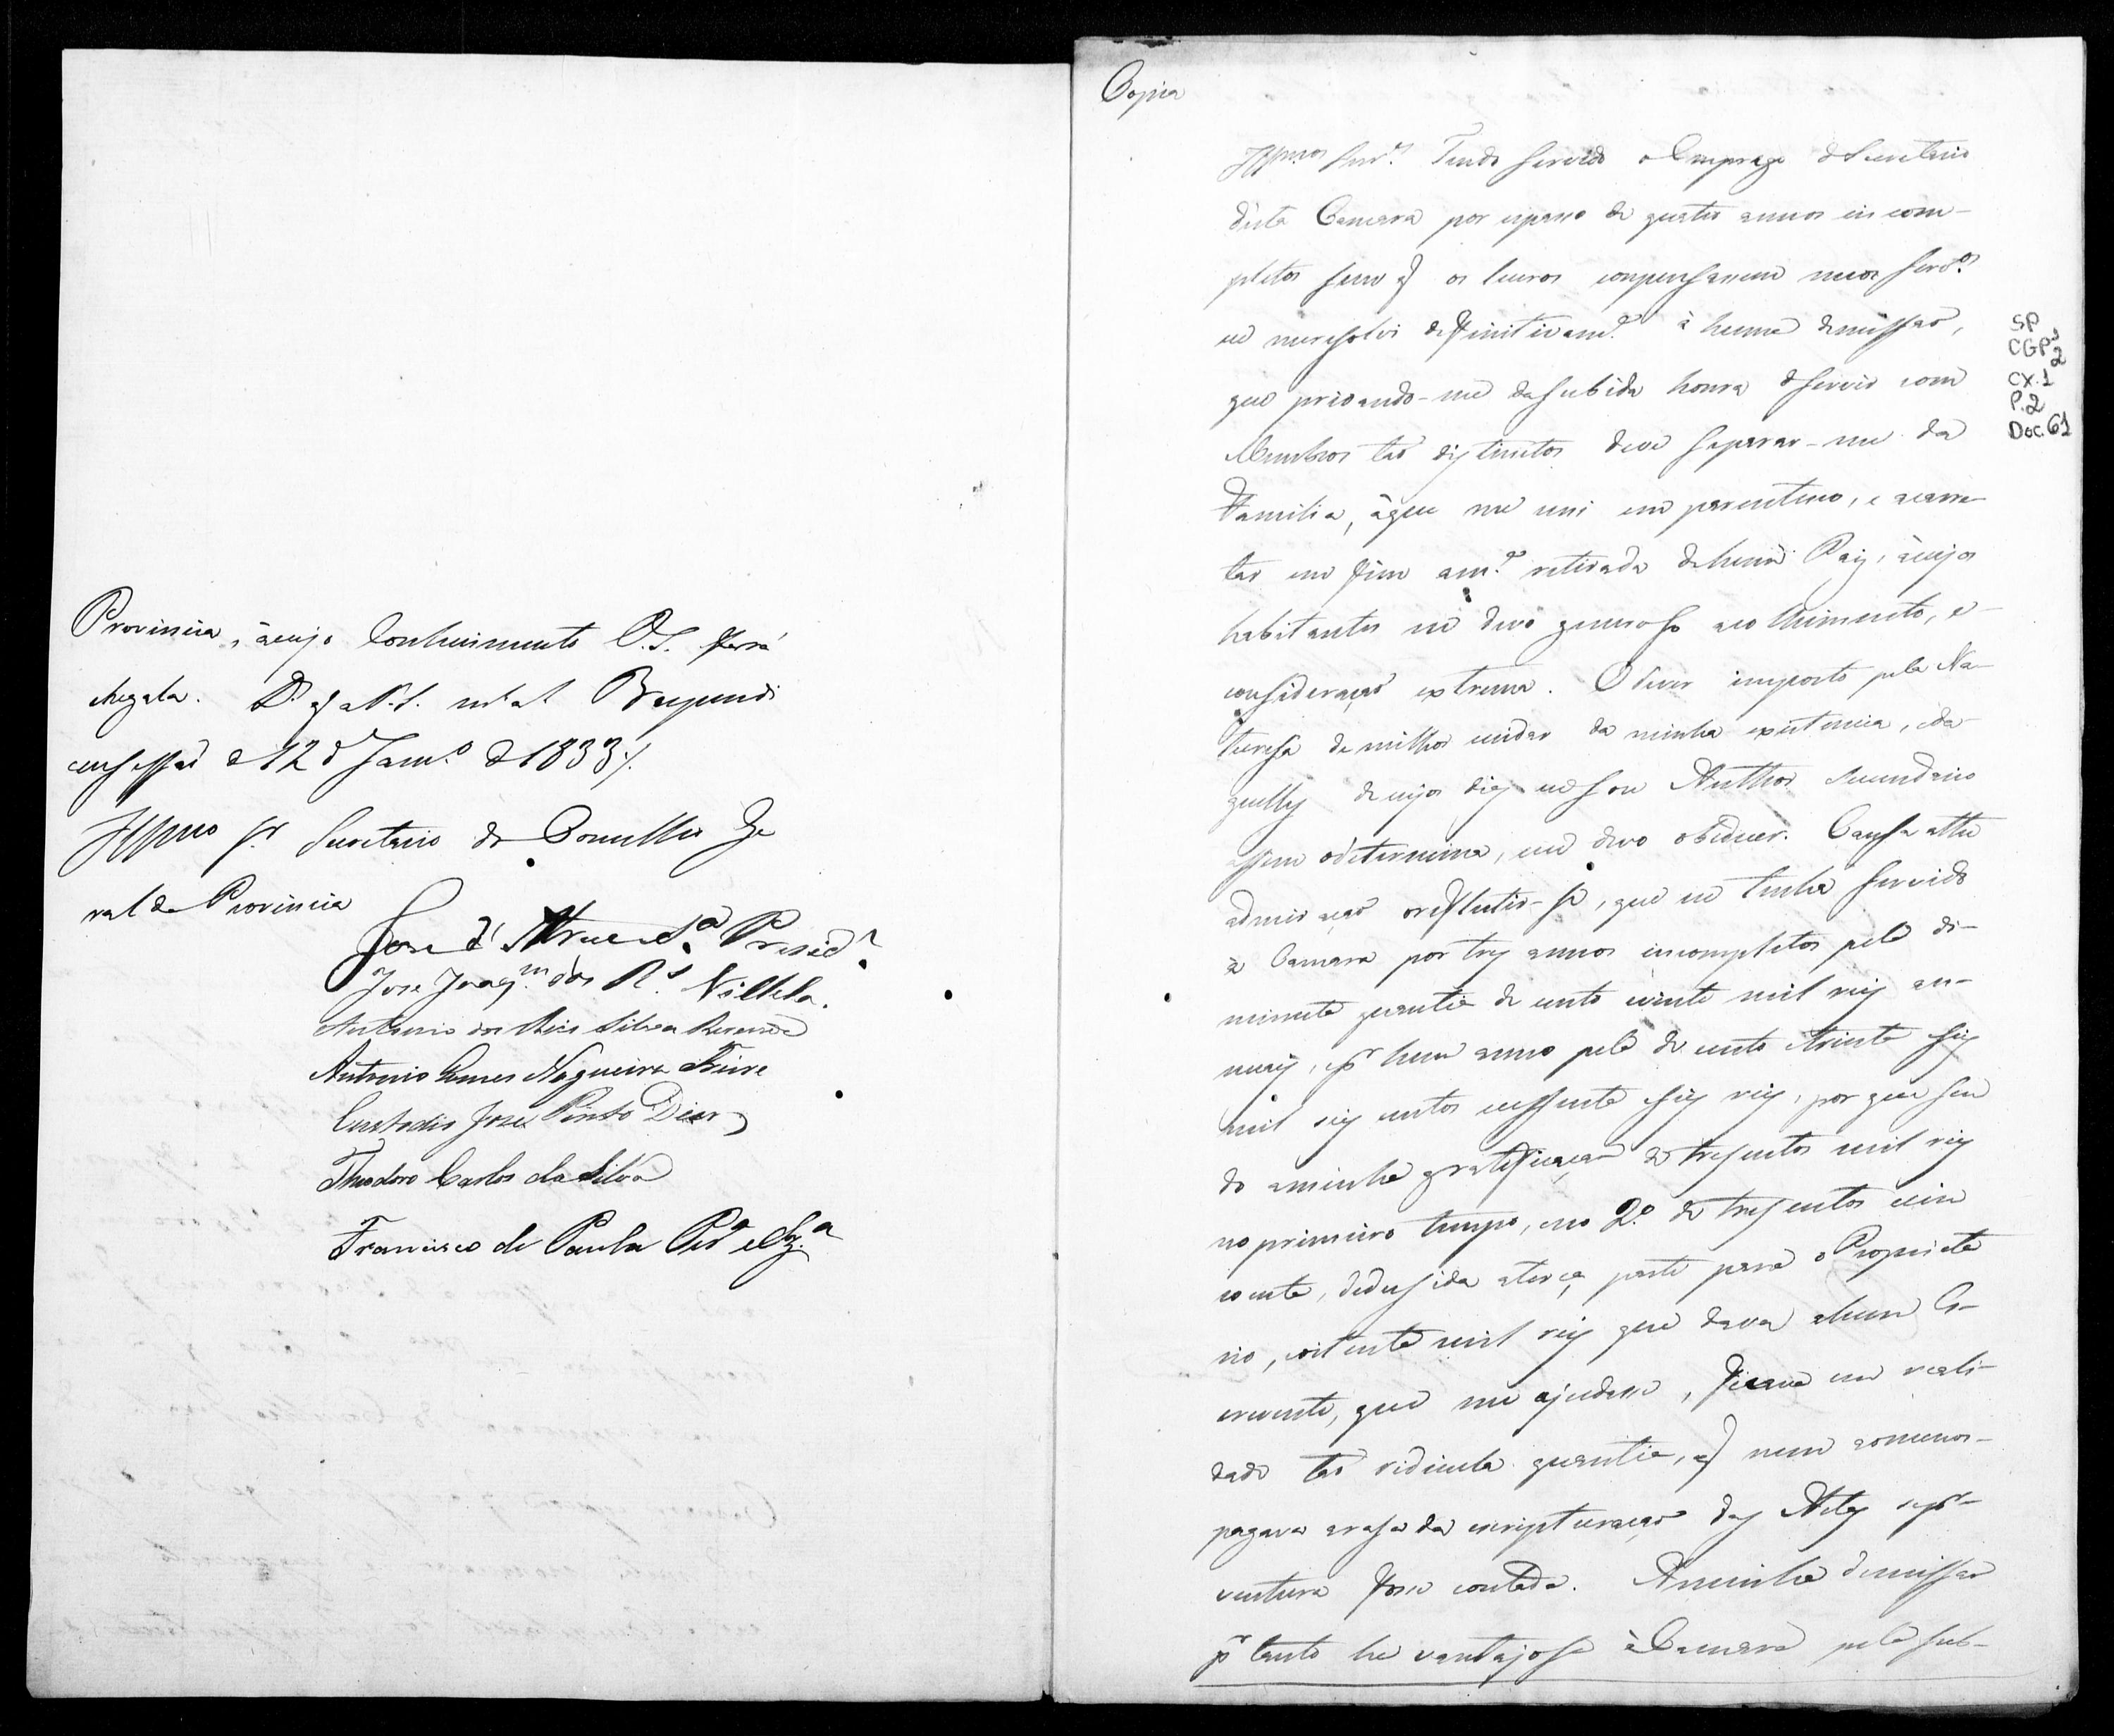 Provincia, àcujo Conhecimento V.S. fará
chegala. D.s g.e a V.S.
em sessaõ de 12 d' Janr.o d 1833
Illmo Sr. Secretario do Conselho Ge
ral da Provincia
Jose d' Presid.e
Jose Joaq.m dos R.s Villela.
Antonio dos Reis Silva Rezende
Antonio Gomes Nogueira Freire
Custodio Jose Pinto Dias
Theodoro Carlos da Silva
Francisco de Paula
Copia
Illmos Snr.s Tendo servido o Emprego d Secretario
desta Camara por espasso de quatro annos incom-
pletos sem q os lucros conpensassem meos serv.os
eu me resolvi definitivam.e à huma demissaõ,
que privando-me da subida honra d servir com
Membros taõ distinctos deve separar-me da
Familia, àque me uni em parentesco, e acarre
tar em fim a m.a retirada de hum Paiz, àcujos
habitantes eu devo generoso acolhimento, e
consideraçaõ extrema. O dever imposto pela Na-
turesa de milhor cuidar da minha existencia, eda
quelles de cujos dias eu sou Author secundario
assim o determina, eu devo obedecer. Causa atth
admiraçaõ o reflectir-se, que eu tenha servido
à Camara por tres annos incompletos pela di-
minuta quantia de cento evinte mil reis an-
nuaes, e p.r hum anno pela de cento etrinta eseis
mil seis centos esessenta eseis reis, por que sen
do aminha gratificaçaõ de tresentos mil reis
no primeiro tempo, eno 2.o de tresentos ecin
coenta, dedusida aterça parte para o Proprieta
rio, eoitenta mil reis que dava ahum Es-
crevente, que me ajudasse, ficava em reali-
dade taõ ridicula quantia, q nem aomenos-
pagava arasa da escripturaçaõ das Actas sep.r-
ventura fosse contada. Aminha demissaõ
p.r tanto he vantajosa à Camara pela sub-
SP
CGP3
2
CX.1
P.2
Doc.61